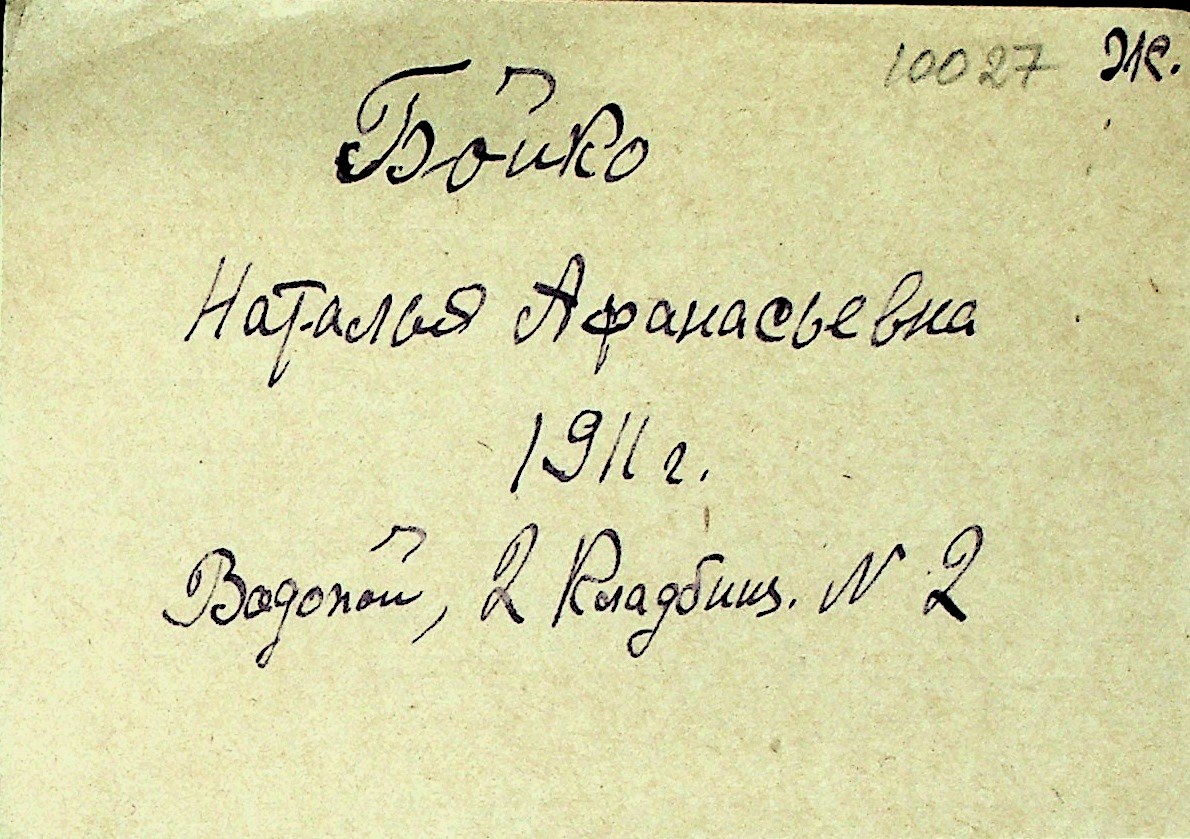 10027 Ж.
Бойко
Наталья Афанасьевна
1911 г.
Водопой, 2 Кладбищ. N 2